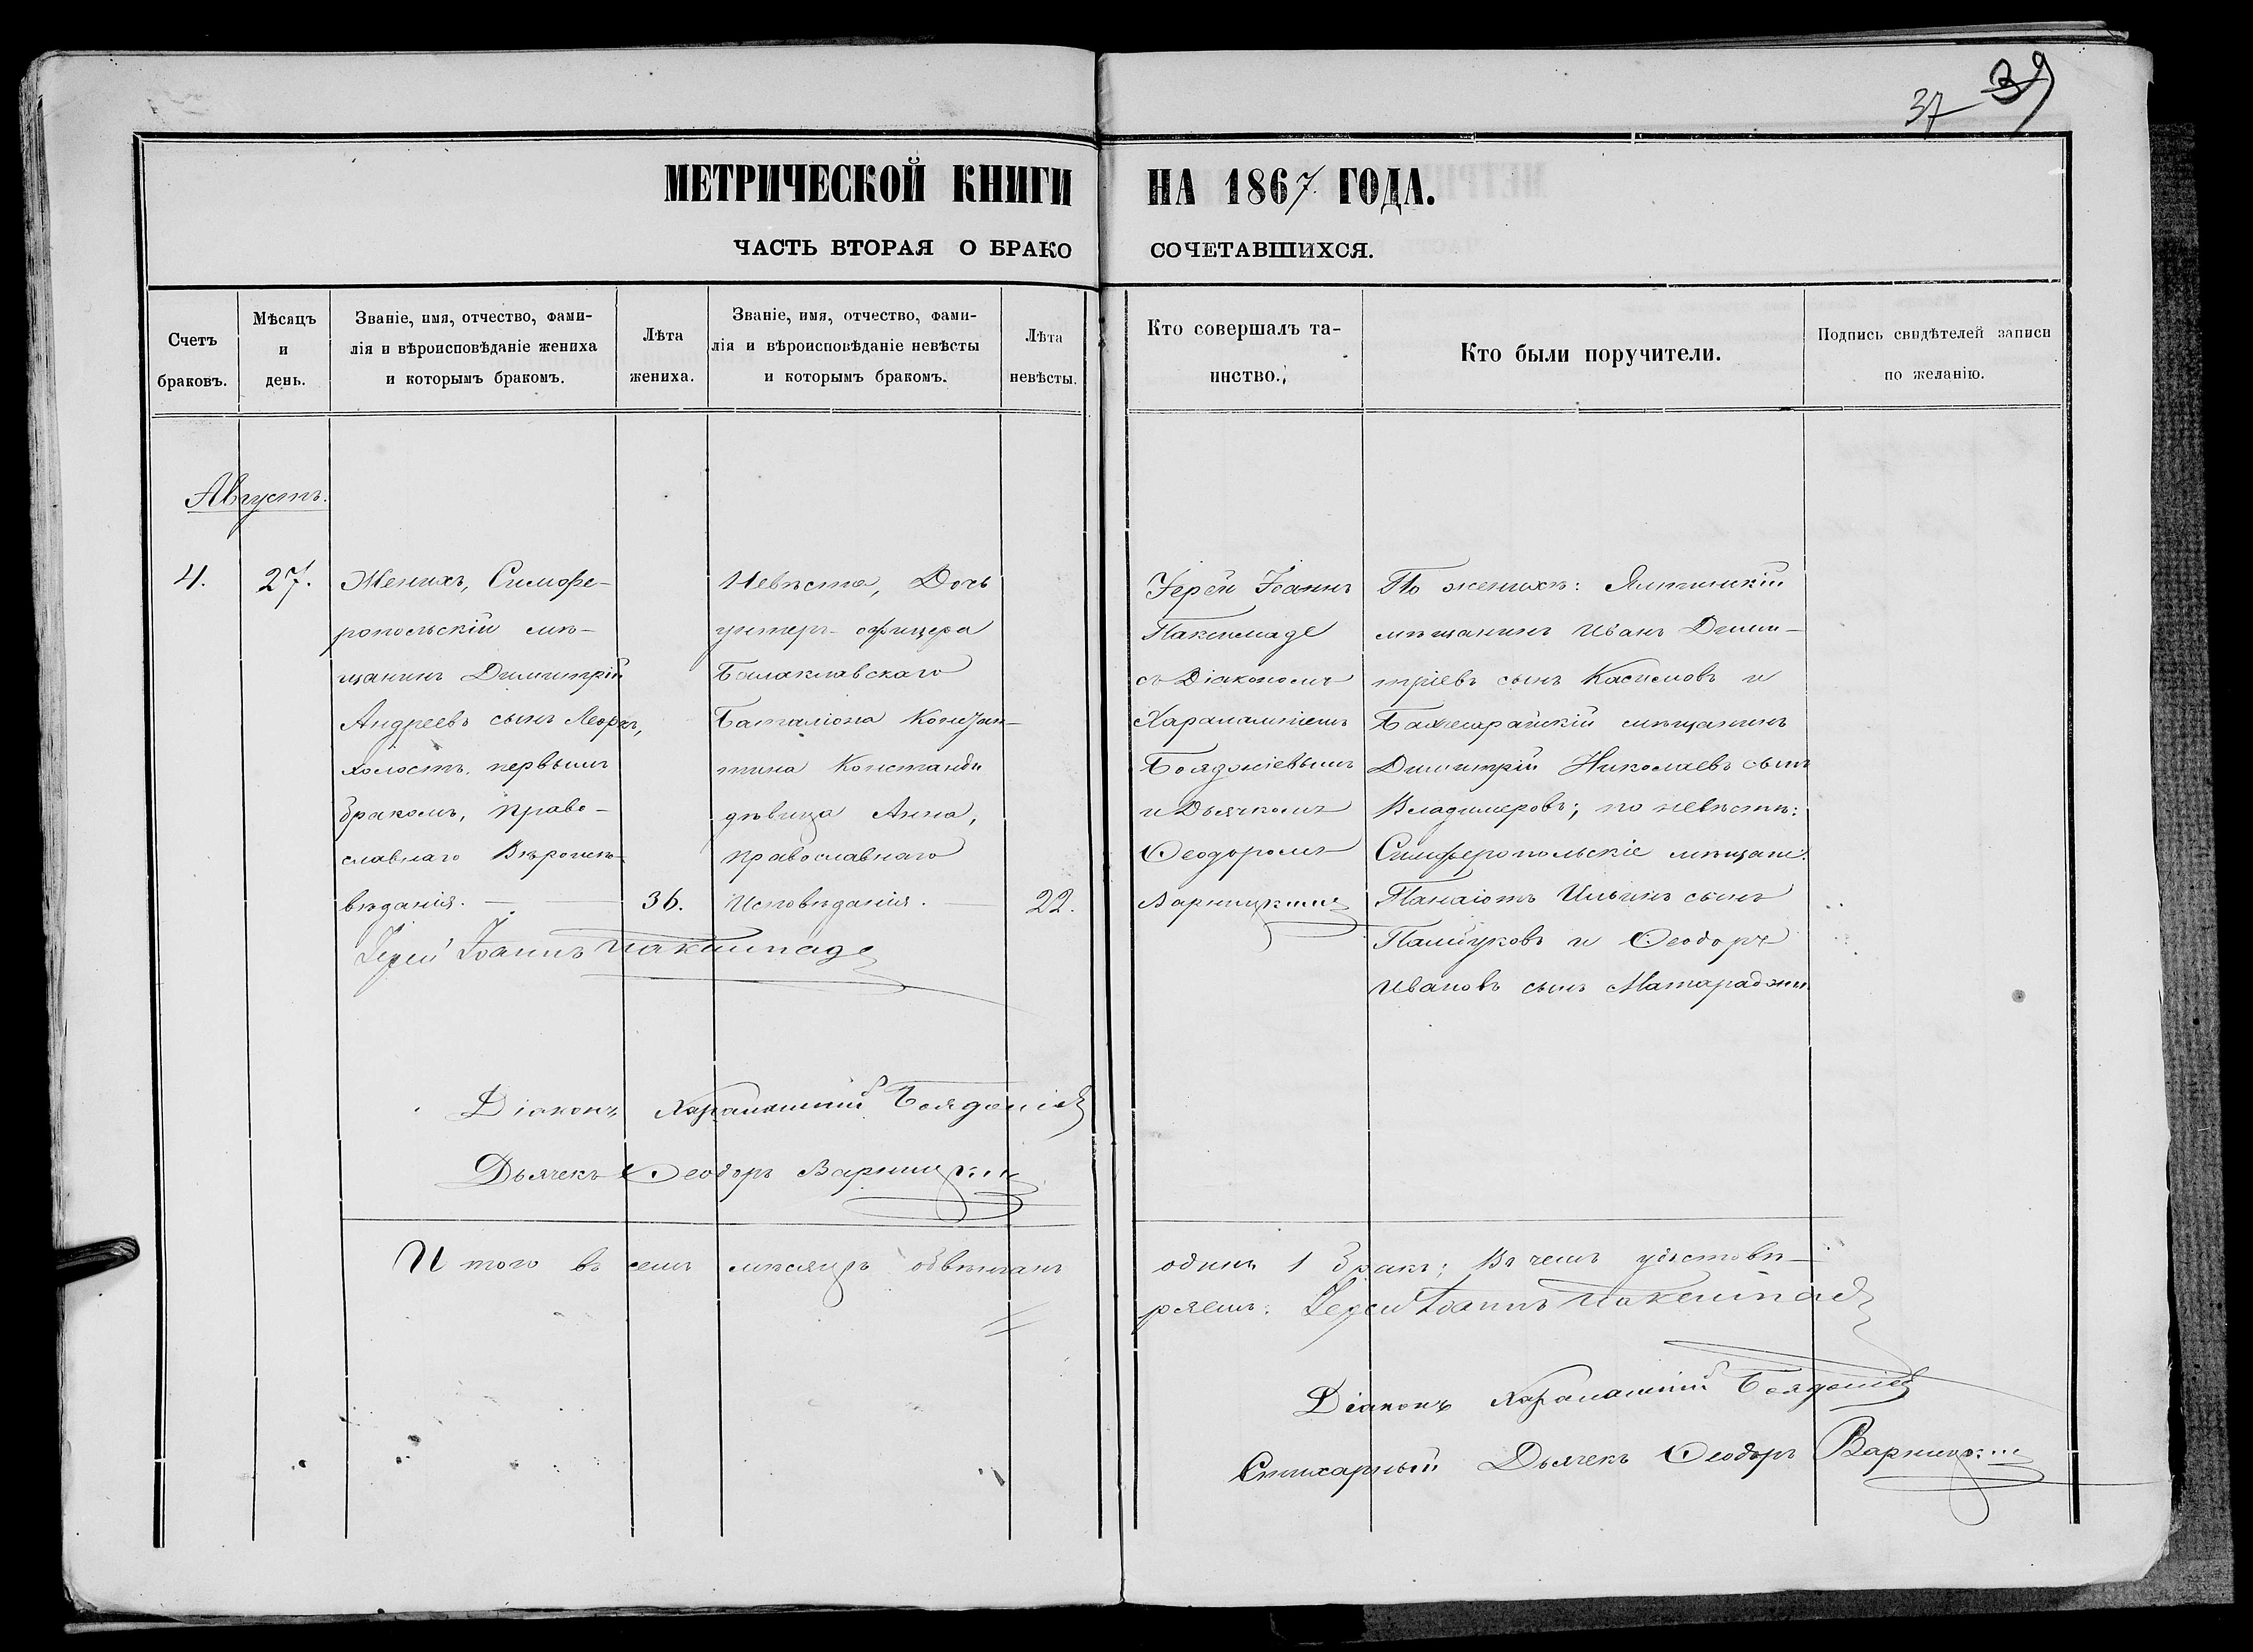 37 39
МЕТРИЧЕСКОЙ КНИГИ НА 1867 ГОДА.
ЧАСТЬ ВТОРАЯ О БРАКОСОЧЕТАВШИХСЯ.
Счетъ
браковъ.
Мѣсяцъ
и
день.
Званіе, имя, отчество, фами-
лія и вѣроисповѣданіе жениха
и которымъ бракомъ.
Лѣта
жениха.
Званіе, имя, отчество, фами-
лія и вѣроисповѣданіе невѣсты
и которымъ бракомъ.
Лѣта
невѣсты.
Кто совершалъ та-
инство.
Кто были поручители.
Подпись свидѣтелей записи
по желанію.
Августъ.
4.
27.
Женихъ, Симфе-
ропольскій мѣ-
щанинъ Димитрій
Андреевъ сынъ
холостъ, первымъ
бракомъ, право-
славнаго Вѣроиспо-
вѣданія.
36.
Невѣста, Дочь
унтеръ-офицера
Балаклавскаго
Баталіона Констан-
тина Констанди
дѣвица Анна,
православнаго
Исповѣданія.
22.
Іерей Іоаннъ
Паксимаде
съ Діакономъ
Харалампіемъ
Бояджіевымъ
и Дьячкомъ
Ѳеодоромъ
Варницкимъ
По женихѣ: Ялтинскій
мѣщанинъ Иванъ Дими-
тріевъ сынъ Касимовъ и
Бахчисарайскій мѣщанинъ
Димитрій Николаевъ сынъ
Владимеровъ; по невѣстѣ:
Симферопольскіе мѣщане:
Панаіотъ Ильинъ сынъ
Пашуковъ и Ѳеодоръ
Ивановъ сынъ Матараджи
Іерей Іоаннъ Паксимаде
Діаконъ Харалампій Бояджіев
Дьячекъ Ѳеодоръ Варницкій
Итого въ семъ мѣсяцѣ обвѣнчанъ одинъ 1 бракъ; Въ чемъ удостовѣ-
ряемъ: Іерей Іоаннъ Паксимаде
Діаконъ Харалампій Бояджіев
Стихарный Дьячекъ Ѳеодоръ Варницкій